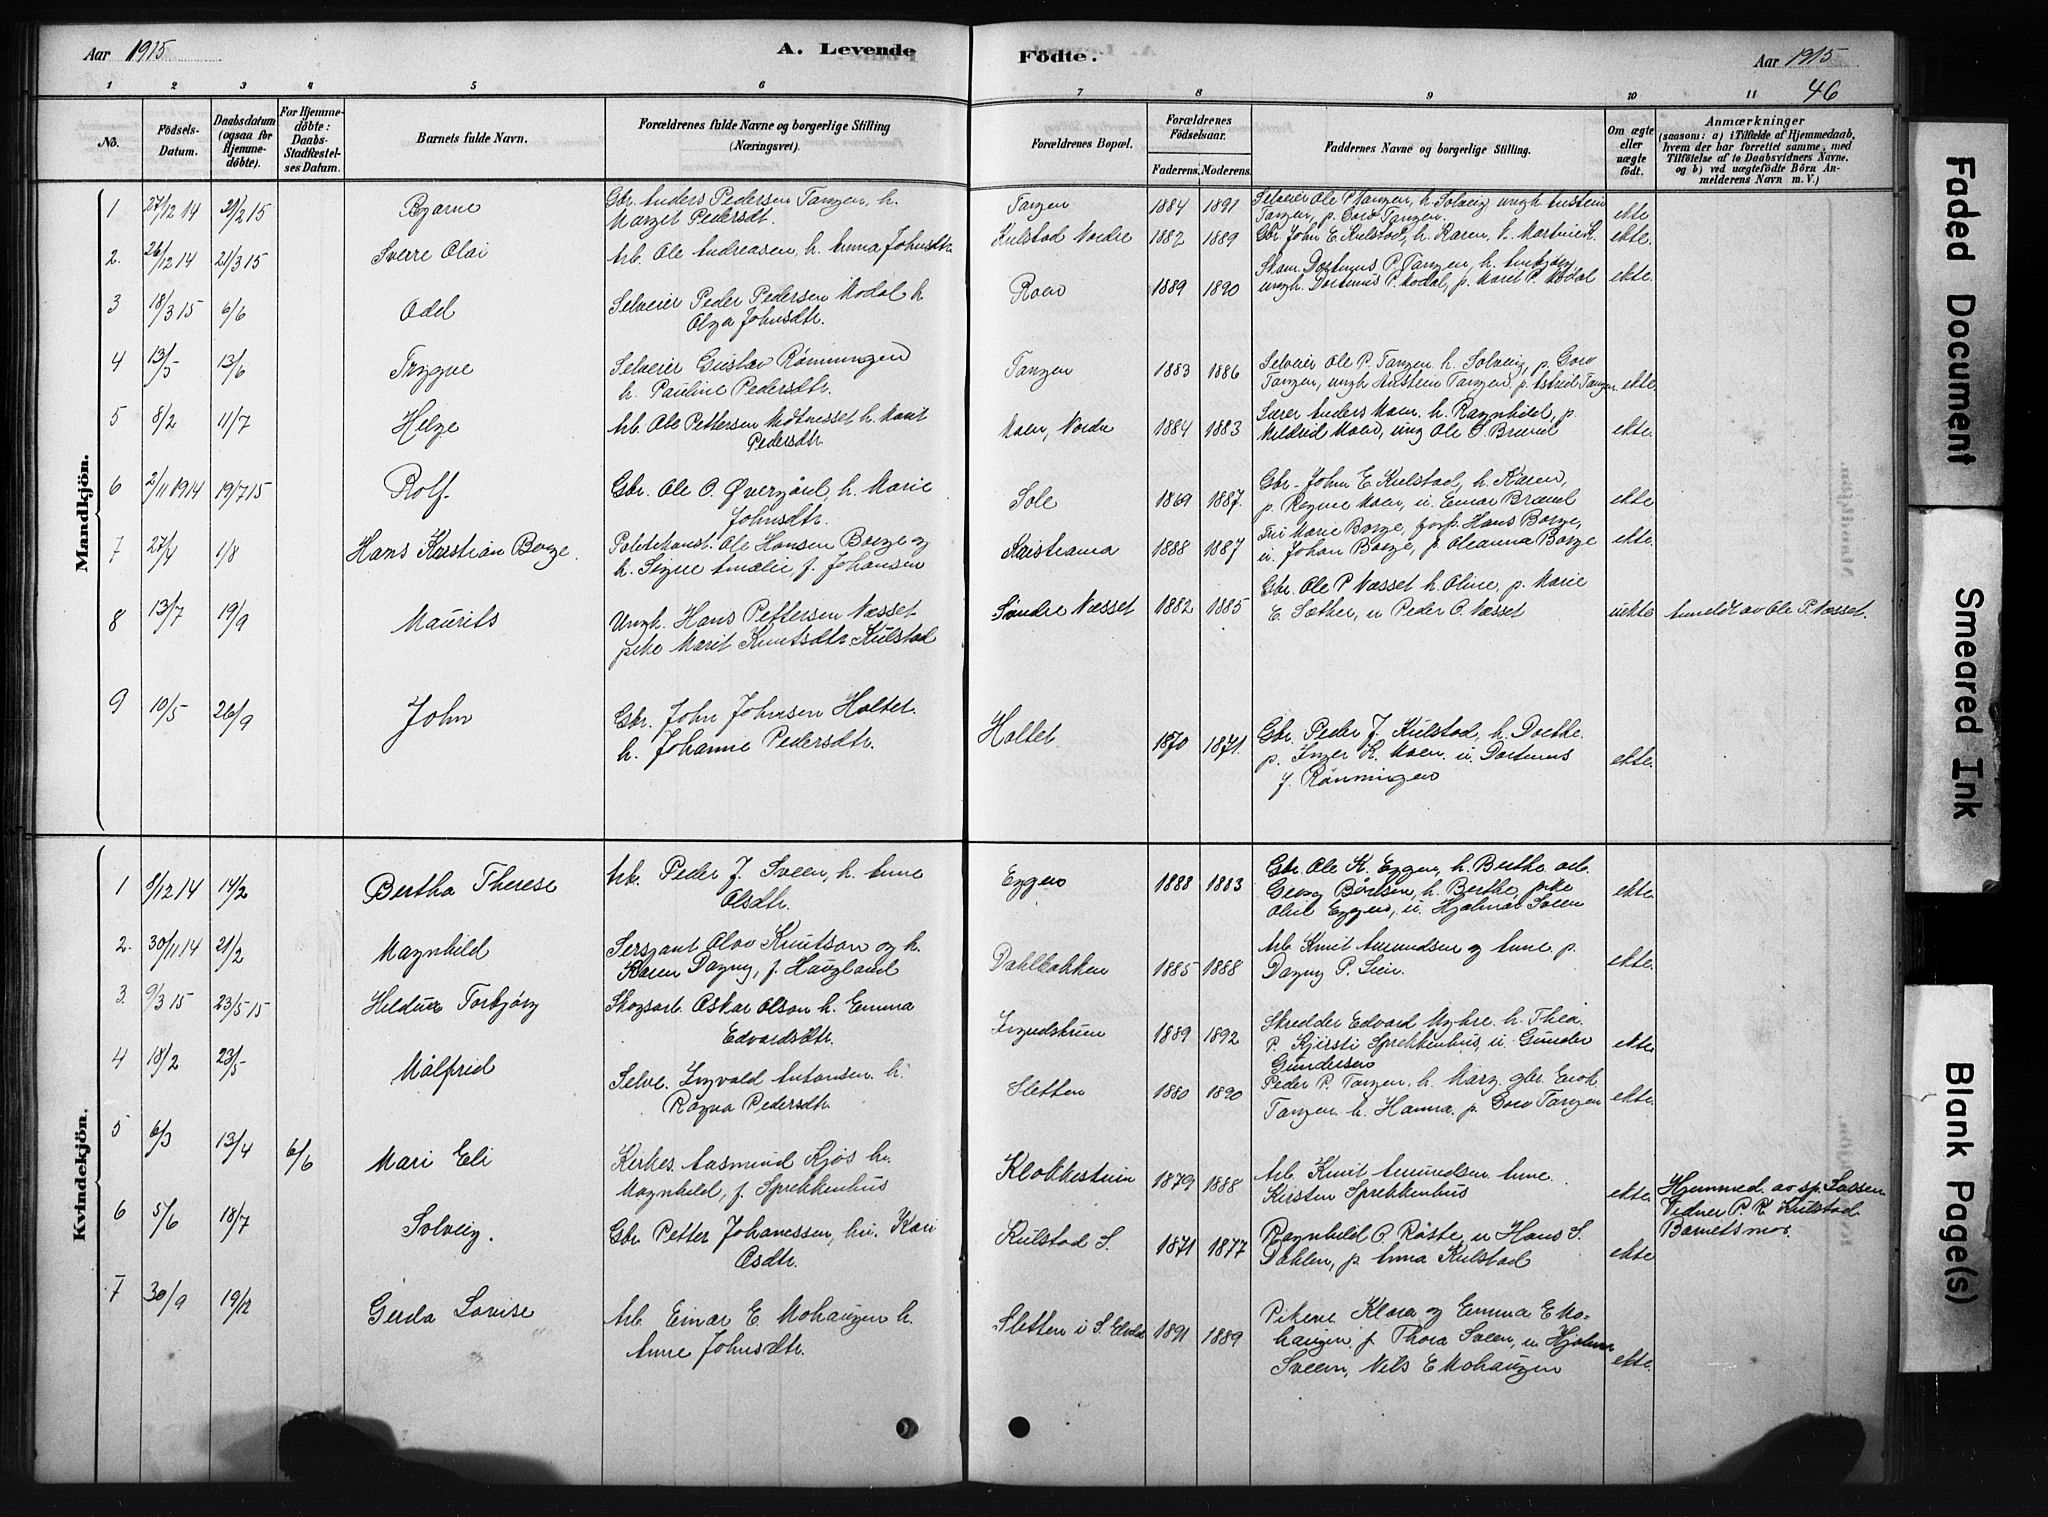 Aar 1915
A. Levende
Födte.
Aar 1915
46
1 2 3 4 5 6 7 8 9 10 11
No.
Födsels-
Datum.
Daabsdatum
(ogsaa for
Hjemme-
döbte).
For Hjemme-
döbte:
Daabs-
Stadfæstel-
ses Datum.
Barnets fulde Navn.
Forældrenes fulde Navne og borgerlige Stilling
(Næringsvei).
Forældrenes Bopæl.
Forældrenes
Födselsaar.
Faderens. Moderens.
Faddernes Navne og borgerlige Stilling.
Om ægte
eller
uægte
födt.
Anmærkninger
(saasom: a) i Tilfælde af Hjemmedaab,
hvem der har forrettet samme, med
Tilföielse af to Daabsvidners Navne.
og b) ved uægtefödte Börn An-
melderens Navn m. V.)
Mandkjön.
1 27/12 14 21/2 15 Bjarne
Gbr. Anders Pedersen Tangen, h.
Marget Pedersdt.
Tangen 1884 1891
Selveier Ole P Tangen, h. Solveig, ungk Austein
Tangen, p. Goro Tangen.
ekte
2. 26/12 14 21/3 15 Sverre Olai
Arb. Ole Andreasen, h. Anna Johnsdtr
Kulstad Nordre 1882 1889
Gbr. John E Kulstad, h. Karen,
ekte.
3 18/3 15 6/6 Odd
Selveier Peder Pedersen Modal h
Olga Johnsdtr.
Roen 1889 1890
Dortenus P. Tangen, h.
ungk. Dortenus P. Modal, p. Marit P. Modal
ekte.
4 13/5 13/6 Trygve
Selveier Gustav Rønningen
h. Pauline Pedersdtr.
Tangen 1883 1886
Selveier Ole P. Tangen h. Solveig, p. Goro
Tangen, ungk Austein Tangen, p. Astrid Tangen
ekte.
5 8/2 11/7 Helge
Arb. Ole Pettersen h. Marit
Pedersdtr
Moen, Nordre 1884 1883
Anders Moen, h. Ragnhild, p
Mildrid Moen, ung Ole O. Brænd
ekte.
6 2/11 1914 19/7 15 Rolf
Gbr. Ole O. Øvergård, h. Marie
Johnsdtr.
Sole 1869 1887.
Gbr. John E Kulstad, h. Karen,
p. Regine Moen, u. Einar Brænd
ekte
7 27/4 1/8 Hans Kristian Berge.
Politikonst. Ole Hansen Berge og
h. Signe Amalie, f. Johansen
Kristiania 1888 1887
Fru Marie Borge, Hans Borge,
u. Johan Borge, p. Oleanna Borge
ekte.
8 13/7 19/9 Maurits
Ungk. Hans Pettersen Næsset
pike Marit Knutsdtr. Kulstad
Søndre Næsset 1882 1885
Gbr. Ole P Næsset h. Oline, p. Marie
E. Sæther, u Peder O. Næsset
uekte
Anmeldt av Ole P. Næsset.
9 10/5 26/9 John
Gbr. John Johnsen Holtet.
h. Johanne Pedersdtr.
Holtet. 1870 1871.
Gbr. Peder J. Kulstad, h. Dorthe.
p. Inger K. Moen. u. Dortenus
J. Rønningen
ekte.
Kvindekjön.
1 8/12 14 14/2 Bertha Therese
Arb. Peder J. Sveen, h. Anne
Olsdtr.
Eggen 1888 1883
Gbr. Ole K. Eggen, h. Berthe, arb.
Georg Børlsen, h. Berthe, pike
Eggen, u. Hjalmar Sveen
ekte.
2. 30/11 14 21/2 Magnhild
Sersjant Olav Knutson og h.
Karen Dagny, f. Haugland
Dahlbakken 1885 1888
Arb. Knut Amundsen og Anne p.
Dagny P. Lien.
ekte.
3. 9/3 15 23/5 15 Hildur Torbjørg
Skogsarb Oskar Olson h. Emma
Edvardsdtr.
Ingulstrøen 1889 1892
Skredder Edvard Myhre. h. Thea.
P. Kjersti Sprekkenhus, u. Gunder
Gundersen
ekte
4 18/2 23/5 Målfrid
Selve. Ingvald Antonsen h.
Ragna Pedersdtr
Sletten 1880 1890
Peder P. Tangen, h. Marg. gbr. Enok
Tangen. h. Hanna. p. Goro Tangen
ekte.
5 6/3 13/4 6/6 Mari Eli
Kirkes. Aasmund Kjøs h.
Magnhild, f. Sprekkenhus
Klokkestuen 1879 1888
Arb. Knut Amundsen. Anne.
Kirsten Sprekkenhus
ekte.
Hjemmed. av sp. Lassen
Vidner P. R. Kulstad
Barnets mor.
6 5/6 18/7 Solveig.
Gbr. Petter Johanessen, hu. Kari
Osdtr.
Kulstad S. 1871 1877
Ragnhild O. Røste, u Hans S.
Dahlen, p Anna Kulstad
ekte
7 30/9 19/12 Gerda Lovise
Arb. Einar E. Mohaugen h.
Anne Johnsdtr.
Sletten i S. 1891 1889
Pikene Klara og Emma E Mo-
haugen, p Thora Sveen, u Hjalmar
Sveen, Nils E Mohaugen
ekte.
Faded Document
Smeared Ink
Blank Page(s)